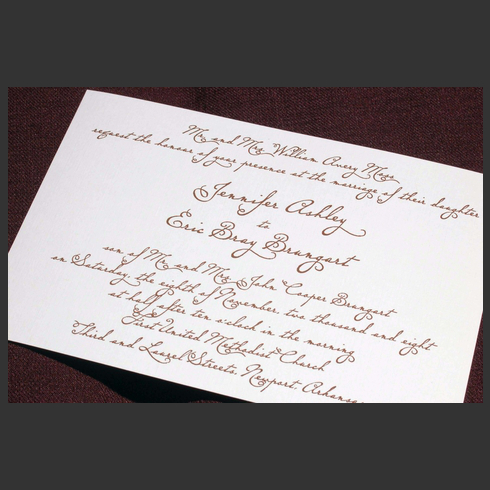 Mr. and Mrs. William Avery Moss
request the honour of your presence at the marriage of their daughter
Jennifer Ashley
to
Eric Bray Brungart
son of Mr. and Mrs. John Cooper Brungart
on Saturday, the eighth of November, two thousand and eight
at half after ten o'clock in the morning
First United Methodist Church
Third and Laurel Streets, Newport, Arkansas